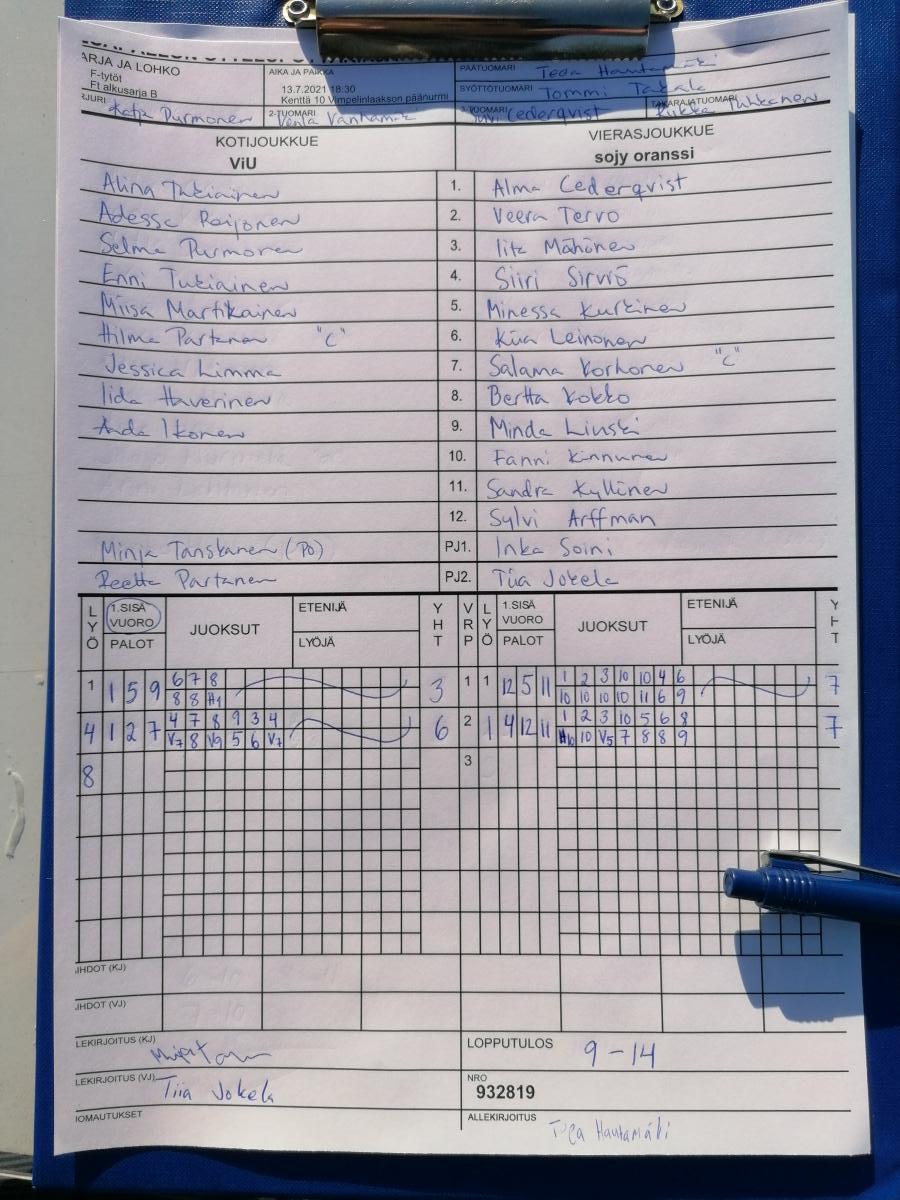 ARJA JA LOHKO
F-tytöt
Ft alkusarja B
AIKA JA PAIKKA
13.7.2021 18:30
Kenttä 10 Vimpelinlaakson päänurmi
PÄÄTUOMARI Teea Hautamäki
SYÖTTÖTUOMARI Tommi Takala
RJURI Katja Purmonen
2-TUOMARI Venla Vanhamäki
3-TUOMARI Cederqvist
TAKARAJATUOMARI Riikka Tuhkanen
KOTIJOUKKUE
ViU
VIERASJOUKKUE
sojy oranssi
Alina Tukiainen 1. Alma Cederqvist
Adessa Reijonen 2. Veera Tervo
Selma Purmonen 3. Iita Mähönen
Enni Tukiainen 4. Siiri Sirviö
Miisa Martikainen 5. Minessa Kurkinen
Hilma Partanen "C" 6. Kiia Leinonen
Jessica Limma 7. Salama Korhonen "C"
Iida Haverinen 8. Bertta Kokko
Anda Ikonen 9. Minda Linski
10. Fanni Kinnunen
11. Sandra Kyllinen
12. Sylvi Arffman
Minja Tanskanen (PO) PJ1. Inka Soini
Reetta Partanen PJ2. Tiia Jokela
LYÖ 1.SISÄ VUORO PALOT JUOKSUT ETENIJÄ LYÖJÄ YHT VRP LYÖ 1.SISÄ VUORO PALOT JUOKSUT ETENIJÄ LYÖJÄ YHT
1 1 5 9 6 7 8 3 1 1 12 5 11 1 2 3 10 10 4 6 7
8 8 H1 10 10 10 10 11 6 9
4 1 2 7 4 7 8 9 3 4 6 2 1 4 12 11 1 2 3 10 5 6 8 7
V7 8 V9 5 6 V7 H10 10 V5 7 8 8 9
8 3
IHDOT (KJ)
IHDOT (VJ)
LEKIRJOITUS (KJ)
LOPPUTULOS 9-14
LEKIRJOITUS (VJ) Tiia Jokela
NRO
932819
IOMAUTUKSET
ALLEKIRJOITUS Teea Hautamäki